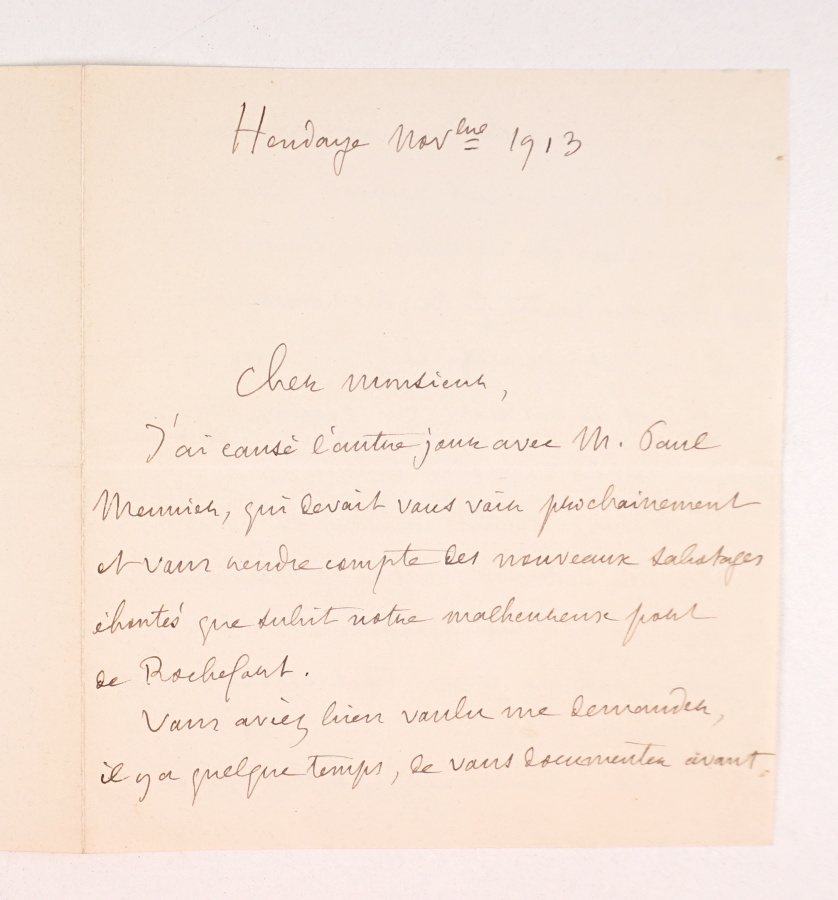 Hendaye Nov^bre 1913
Cher monsieur,
J'ai causé l'autre jour avec M. Paul
Meunier, qui devait vous voir prochainement
et vous rendre compte des nouveaux sabotages
éhontés que subit notre malheureux port
de Rochefort.
Vous aviez bien voulu me demander,
il y a quelque temps, de vous documenter avant